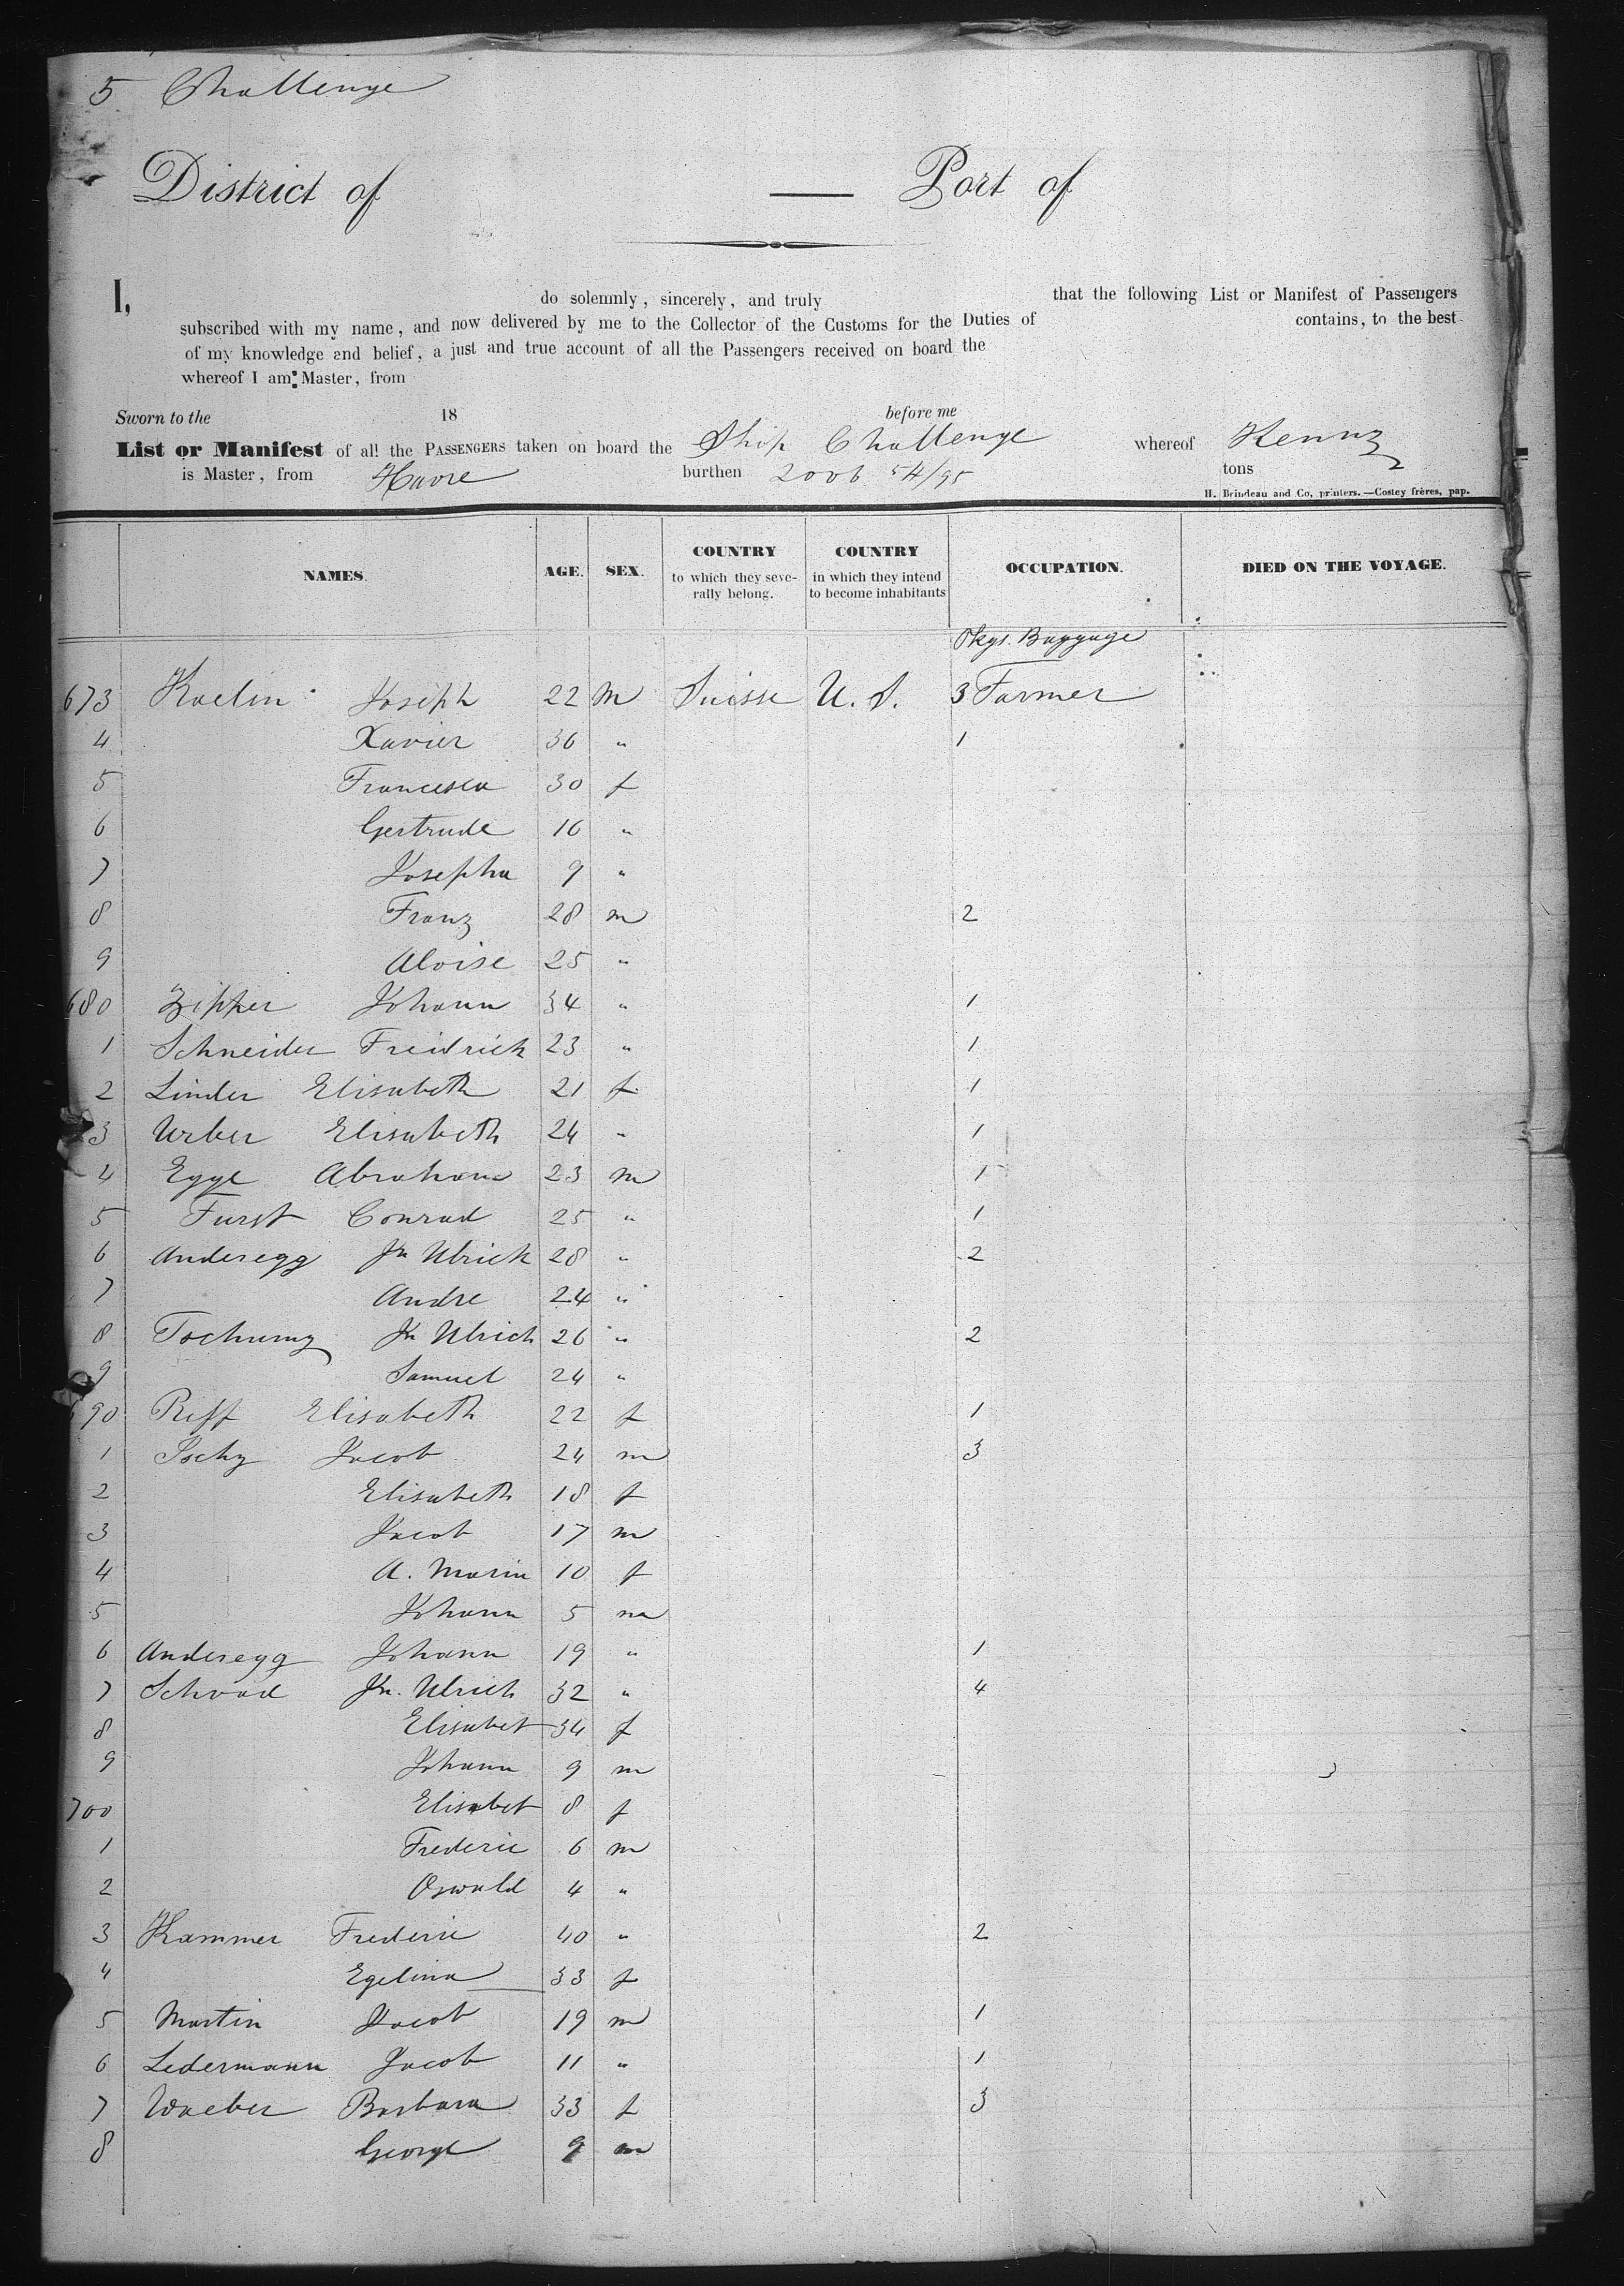 5 Challenge
District of — Port of
I, do solemnly, sincerely, and truly that the following List or Manifest of Passengers
subscribed with my name, and now delivered by me to the Collector of the Customs for the Duties of contains, to the best
of my knowledge and belief, a just and true account of all the Passengers received on board the
whereof I am Master, from
Sworn to the 18 before me
List or Manifest of all the PASSENGERS taken on board the Ship Challenge whereof Kenny
is Master, from Havre burthen 2006 54/95 tons
H. Brindeau and Co, printers.—Costey frères, pap.
NAMES. AGE. SEX. COUNTRY to which they severally belong. COUNTRY in which they intend to become inhabitants OCCUPATION. DIED ON THE VOYAGE.
Pkgs. Baggage
673 Kaelin Joseph 22 m Suisse U. S. 3 Farmer
4 Xavier 36 " 1
5 Francesca 30 f
6 Gertrude 16 "
7 Josepha 9 "
8 Franz 28 m 2
9 Aloise 25 "
680 Zipper Johann 34 " 1
1 Schneider Freidrich 23 " 1
2 Linder Elisabeth 21 f 1
3 Urber Elisabeth 24 " 1
4 Egge Abraham 23 m 1
5 Furst Conrad 25 " 1
6 Anderegg Jn Ulrich 28 " 2
7 Andre 24 "
8 Tschumy Jn Ulrich 26 " 2
9 Samuel 24 "
690 Riff Elisabeth 22 f 1
1 Jacob 24 m 3
2 Elisabeth 18 f
3 Jacob 17 m
4 A. Maria 10 f
5 Johann 5 m
6 Anderegg Johann 19 " 1
7 Schood Jn. Ulrich 32 " 4
8 Elisabet 34 f
9 Johann 9 m
700 Elisabet 8 f
1 Frederic 6 m
2 Oswald 4 "
3 Kammer Frederic 40 " 2
4 Egelina 33 f
5 Martin Jacob 19 m 1
6 Ledermann Jacob 11 " 1
7 Waeber Barbara 33 f 3
8 George 9 m